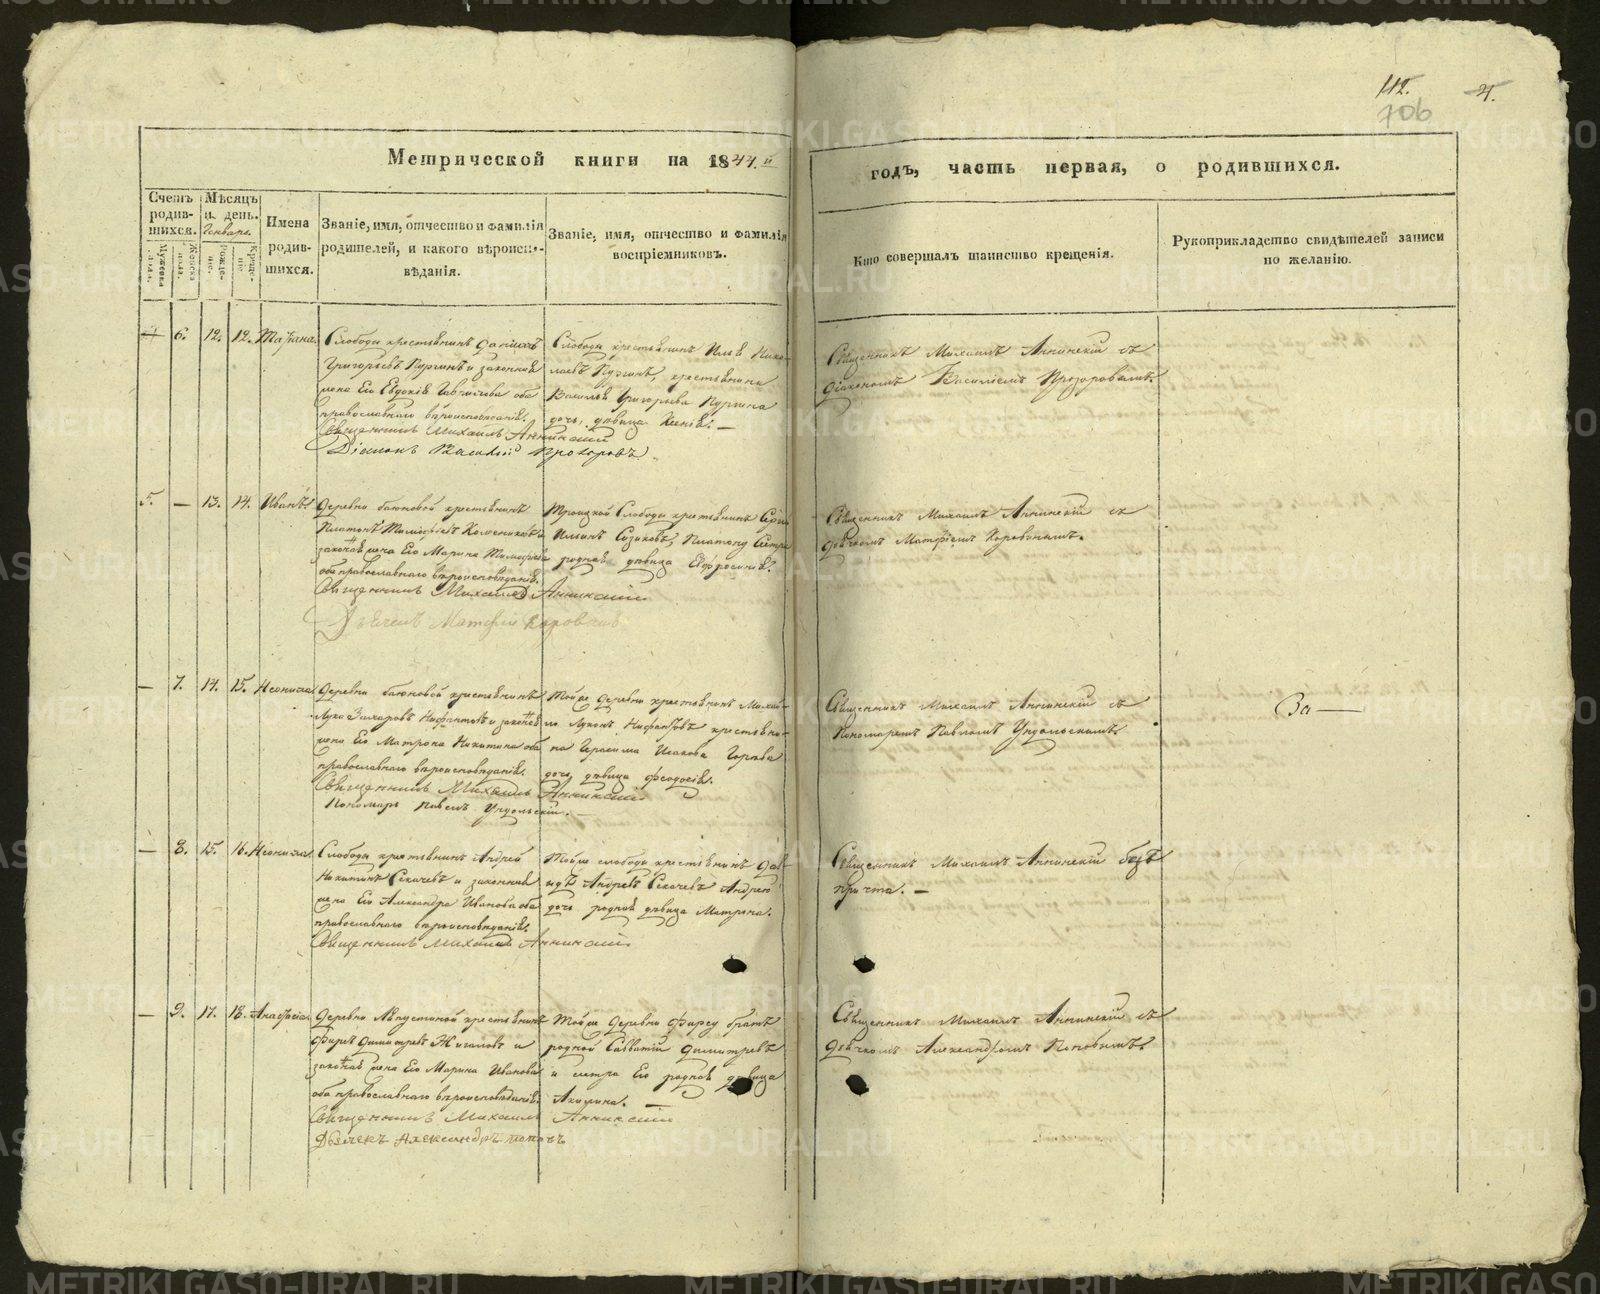 112. 4.
706
Метрической книги на 1844.й
годъ, часть первая, о родившихся.
Счетъ родив-шихся.
Мѣсяцъ и день.
Генварь.
Имена родив-шихся.
Званіе, имя, отчество и фамилія
родителей, и какого вѣроиспо-
вѣданія.
Званіе, имя, отчество и фамилія
воспріемниковъ.
Кто совершалъ таинство крещенія.
Рукоприкладство свидѣтелей записи
по желанію.
Мужеска пола.
Женска пола.
Рожде-ніе.
Креще-ніе
6. 12. 12. Татіана.
Слободы крестьянинъ Даніилъ
Григорьевъ и законная
жена Его Евдокія оба
православнаго вѣроисповѣданія.
Священникъ Михаилъ Аннинскій
Діаконъ Василій Прозоровъ.
Слободы крестьянинъ Илья Нико-
лаевъ крестьянина
Василья Григорьева
дочь, дѣвица Ксенія. —
Священникъ Михаилъ Аннинскій съ
Діакономъ Василіемъ Прозоровымъ.
5. — 13. 14. Иванъ.
Деревни Баюновой крестьянинъ
Платонъ
законная жена Его Марина Тимофѣева
оба православнаго вѣроисповѣданія.
Священникъ Михаилъ Аннинскій
Дьячекъ Матфей Коровинъ
Троицкой Слободы крестьянинъ
Ильинъ Платону Сестра
родная дѣвица Евфросинія.
Священникъ Михаилъ Аннинскій съ
Дьячкомъ Матфіемъ Коровинымъ.
— 7. 14. 15. Неонила
Деревни Баюновой крестьянинъ
Лука Захаровъ Нифантовъ и законная
жена Его Матрона Никитина оба
православнаго вѣроисповѣданія.
Священникъ Михаилъ Аннинскій
Пономарь Павелъ Ундольскій. —
Той же деревни крестьянинъ Михаи-
ло Лукинъ Нифантовъ крестьяни-
на Герасима Исакова
дочь дѣвица Феодосія.
Священникъ Михаилъ Аннинскій съ
Пономаремъ Павломъ Ундольскимъ.
За —
— 8. 15. 16. Неонила
Слободы крестьянинъ Андрей
Никитинъ Секачевъ и законная
жена Его Александра Иванова оба
православнаго вѣроисповѣданія.
Священникъ Михаилъ Аннинскій
Той же слободы крестьянинъ Дав-
идъ Андреевъ Секачевъ Андрею
дочь родная дѣвица Матрона.
Священникъ Михаилъ Аннинскій безъ
причта. —
— 9. 17. 18. Анастасія
Деревни крестьянинъ
Фирсъ Димитріевъ Жигаловъ и
законная жена Его Марина Иванова
оба православнаго вѣроисповѣданія.
Священникъ Михаилъ Аннинскій
Дьячекъ Александръ Поповъ
Той же Деревни Фирсу братъ
родной Савватій Димитріевъ
и сестра Его родная дѣвица
Акилина. —
Священникъ Михаилъ Аннинскій съ
Дьячкомъ Александромъ Поповымъ.
METRIKI.GASO-URAL.RU